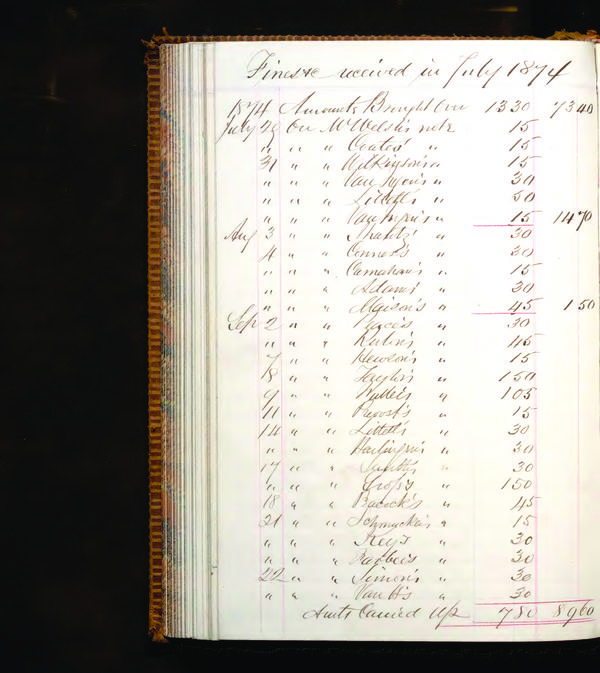 Fines &c received in July 1874
1874 Amounts Brought Over 13 30 73 40
July 29 On Mc Welsh's note 15
" " " Coates' " 15
31 " " Wilkinson's " 15
" " " " 30
" " " Littell's " 50
" " " " 15 14 70
Aug 3 " " Shantz' " 30
4 " " Connor's " 30
" " " Carnahan's " 15
" " " Adams' " 30
" " " " 45 1 50
Sep 2 " " " 30
" " " " 45
7 " " Hewson's " 15
8 " " Taylor's " 150
9 " " " 105
11 " " Provost's " 15
14 " " Littell's " 30
" " " Harlingen's " 30
17 " " Smith's " 30
" " " Cross's " 150
18 " " Bacock's " 45
21 " " Schmucker's " 15
" " " Key's " 30
" " " Barbee's " 30
22 " " Simon's " 30
" " " " 30
Amts Carried Up 7 80 89 60